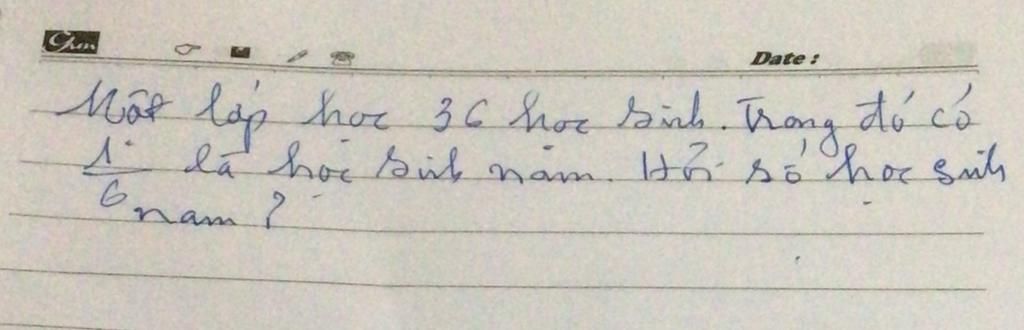 Date :
Một lớp học 36 học sinh. Trong đó có
1/6 là học sinh nam. Hỏi số học sinh
nam ?